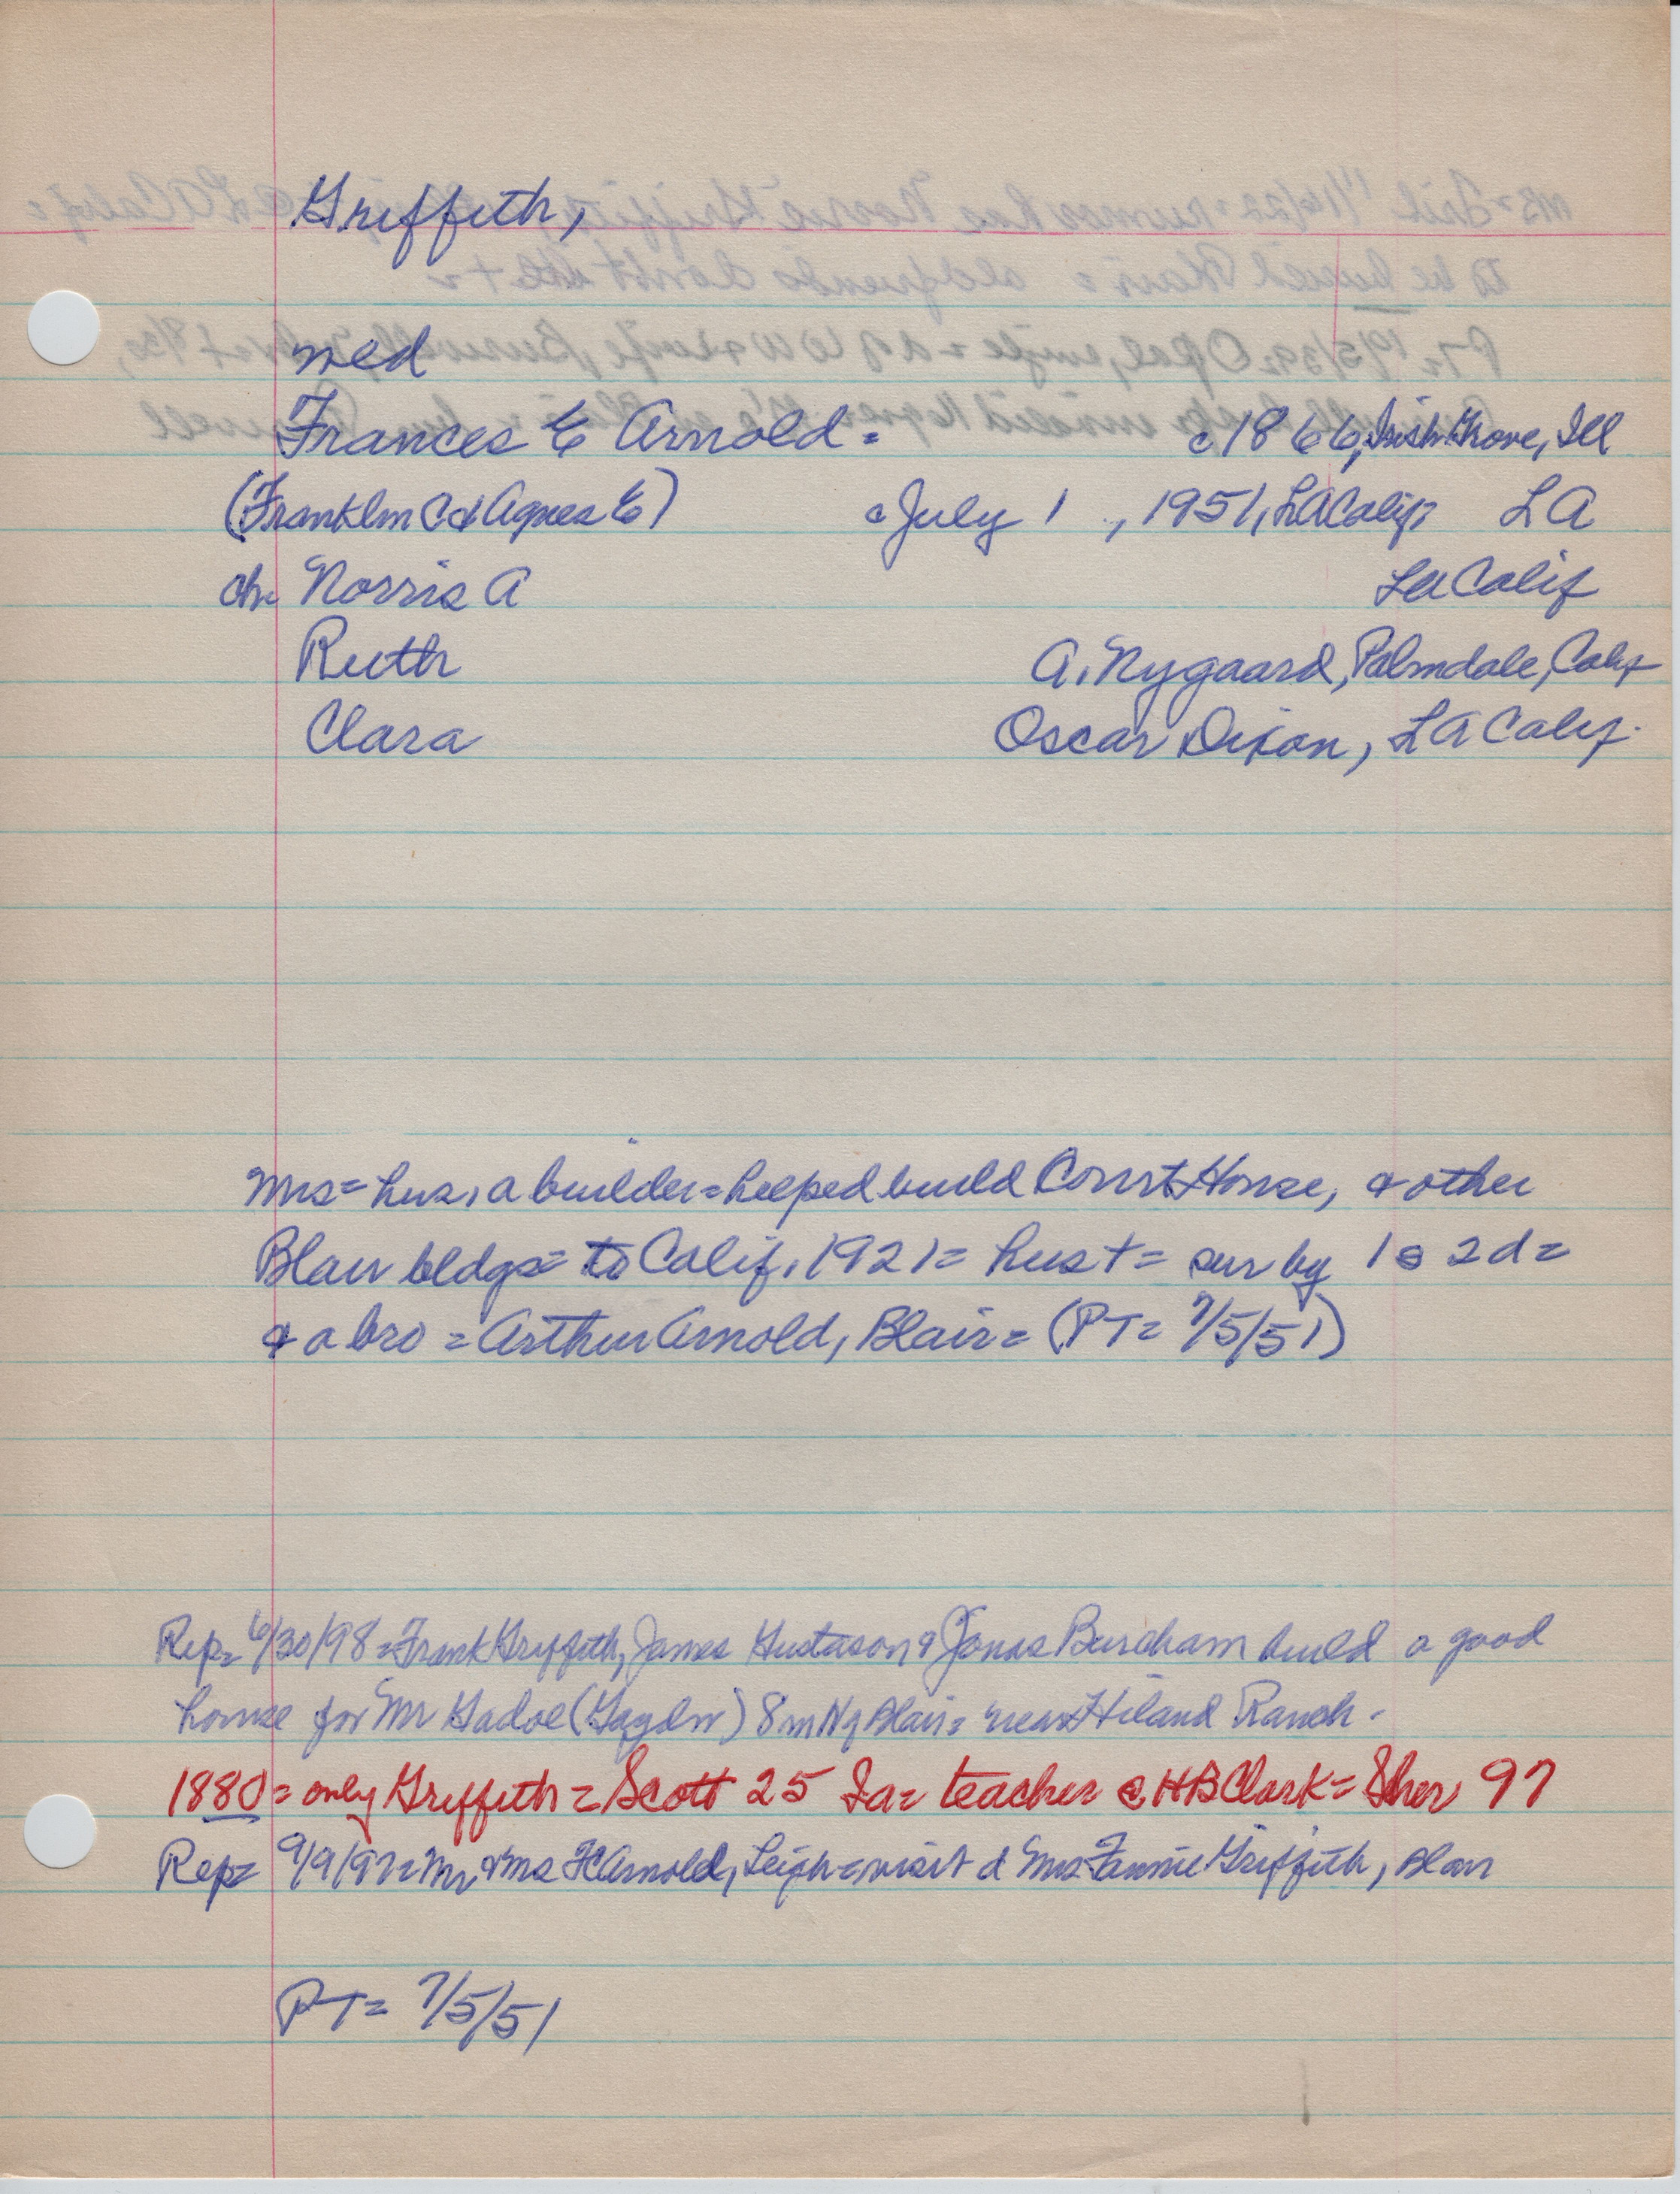 Griffeth,
med
Frances E Arnold = c 1866, Irish Grove, Ill
(Franklin C & Agnes E) c July 1, 1951, LA Calif= LA
ch. Norris A LA Calif
Ruth A. Nygaard, Palmdale, Calif
Clara Oscar Dixon, LA Calif.
Mrs= hus, a builder= helped build Court House, & other
Blair bldgs= to Calif, 1921= hus += sur by 1 s 2d=
& a bro = Arthur Arnold, Blair= (PT= 7/5/51)
Rep= 6/30/98= Frank Griffeth, James Gustason & Jonas Burcham build a good
house for Mr Gadoe (Gaydou) 8 m N of Blair= near Hiland Ranch.
1880= only Griffeth = Scott 25 Ia= teacher @ HB Clark= Sher 97
Rep= 9/9/97= Mr & Mrs FC Arnold, Leigh= visit d Mrs Fannie Griffith, Blair
PT= 7/5/51